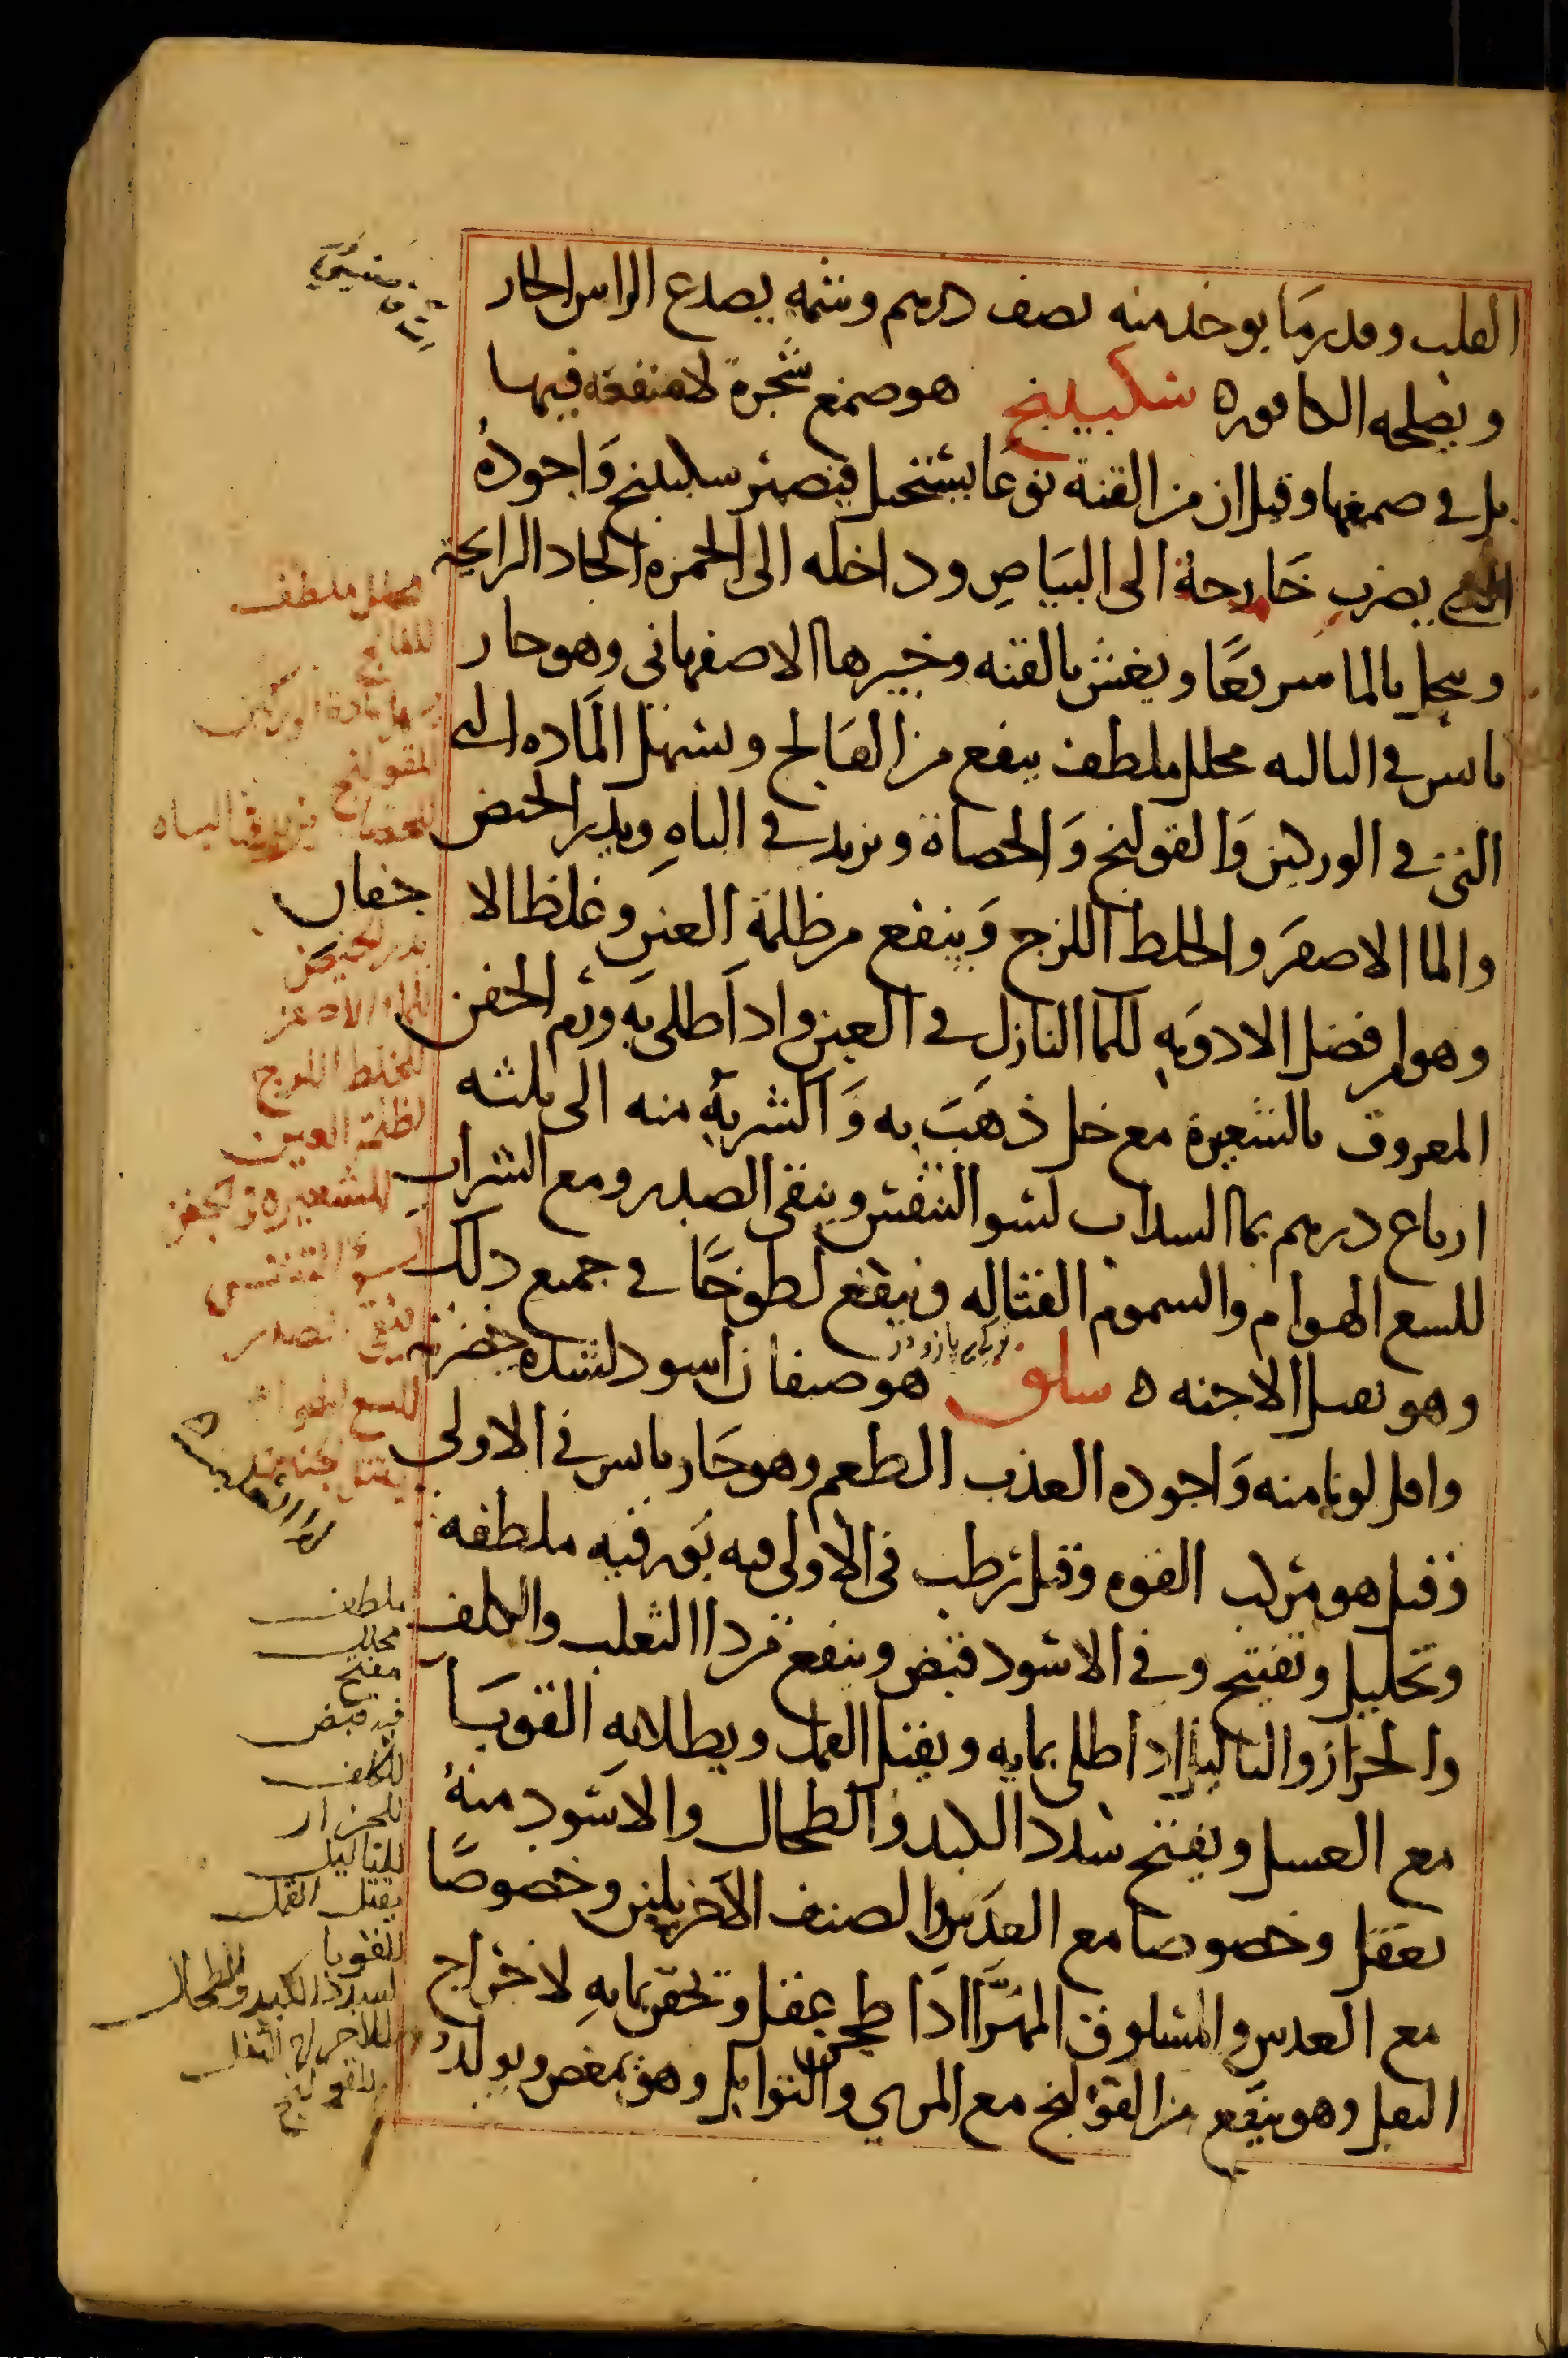 القلب وقدر ما يوخذ منه نصف درهم وشمه يصدع الراس الحار
ويصلحه الكافوره سكبينج هو صمغ شجرة لا منفعة فيها
بل في صمغها وقيل ان من القنة نوعا يستحيل فيصير سكبينج وَاجودهُ
الذي يضرب خَارجه الى البيَاضِ وداخله الى الحمره الحاد الرايحة
وينحل بالما سريعًا ويغش بالقنه وخيرها الاصفهاني وهو حار
يابس في الثالثه محلل ملطف ينفع من الفالج ويسهل المَاده التي
التي في الوركين وَالقولنج وَالحصاة ويزيد في الباهِ ويدر الحيض
والما الاصفر والخلط اللزج وَينفع من ظلمة العين وغلظ الاجفان
وهو افضل الادويَه للما النازل في العين واذا طلي به ورم الجفن
المعروف بالشعيرة مع خل ذهَبَ به وَالشربة منه الى ثلثه
ارباع درهم بما السداب لسو التنفس وينقي الصدر ومع الشراب
للسع الهوام والسموم القتاله وينفع لطوخًا في جميع ذلك
وهو يقتل الاجنه ه سلق هو صنفان اسود لشدة خضرته
واقل لونا منه وَاجوده العذب الطعم وهو حَار يابس في الاولى
وقيل هو مركب القوه وقيل رطب في الاولى فيه بورقيه ملطفه
وتحليل وتفتيح وفي الاسود قبض وينفع من دا الثعلب والكلف
والحزاز والثاليل اذا طلي بمايه ويقتل القمل ويطلا به القوبَا
مع العسل ويفتح سدد الكبد والطحال والاسود منهُ
يعقل وخصوصا مع العدَس والصنف الاخر يلين وخصوصًا
مع العدس والمسلوق المهرَّا اذا طجن عقل وتحقن بمايه لاخراج
الثفل وهو ينفع من القولنج مع المري والتوابل وهو يمغص ويولد
محلل ملطف
للفالج
يسهل مادة الوركين
للقولنج
للحصاة يزيد في الباه
يدر الحيض
للماء الاصفر
للخلط اللزج
لظلمة العين
للشعيرة في الجفن
لسو التنفس
ينقي الصدر
للسع الهوام
يقتل اجنه
لدا الثعلب
ملطف
محلل
مفتح
فيه قبض
للكلف
للحزاز
للثاليل
يقتل القمل
للقوبا
لسدد الكبد والطحال
لاخراج الثفل
للقولنج